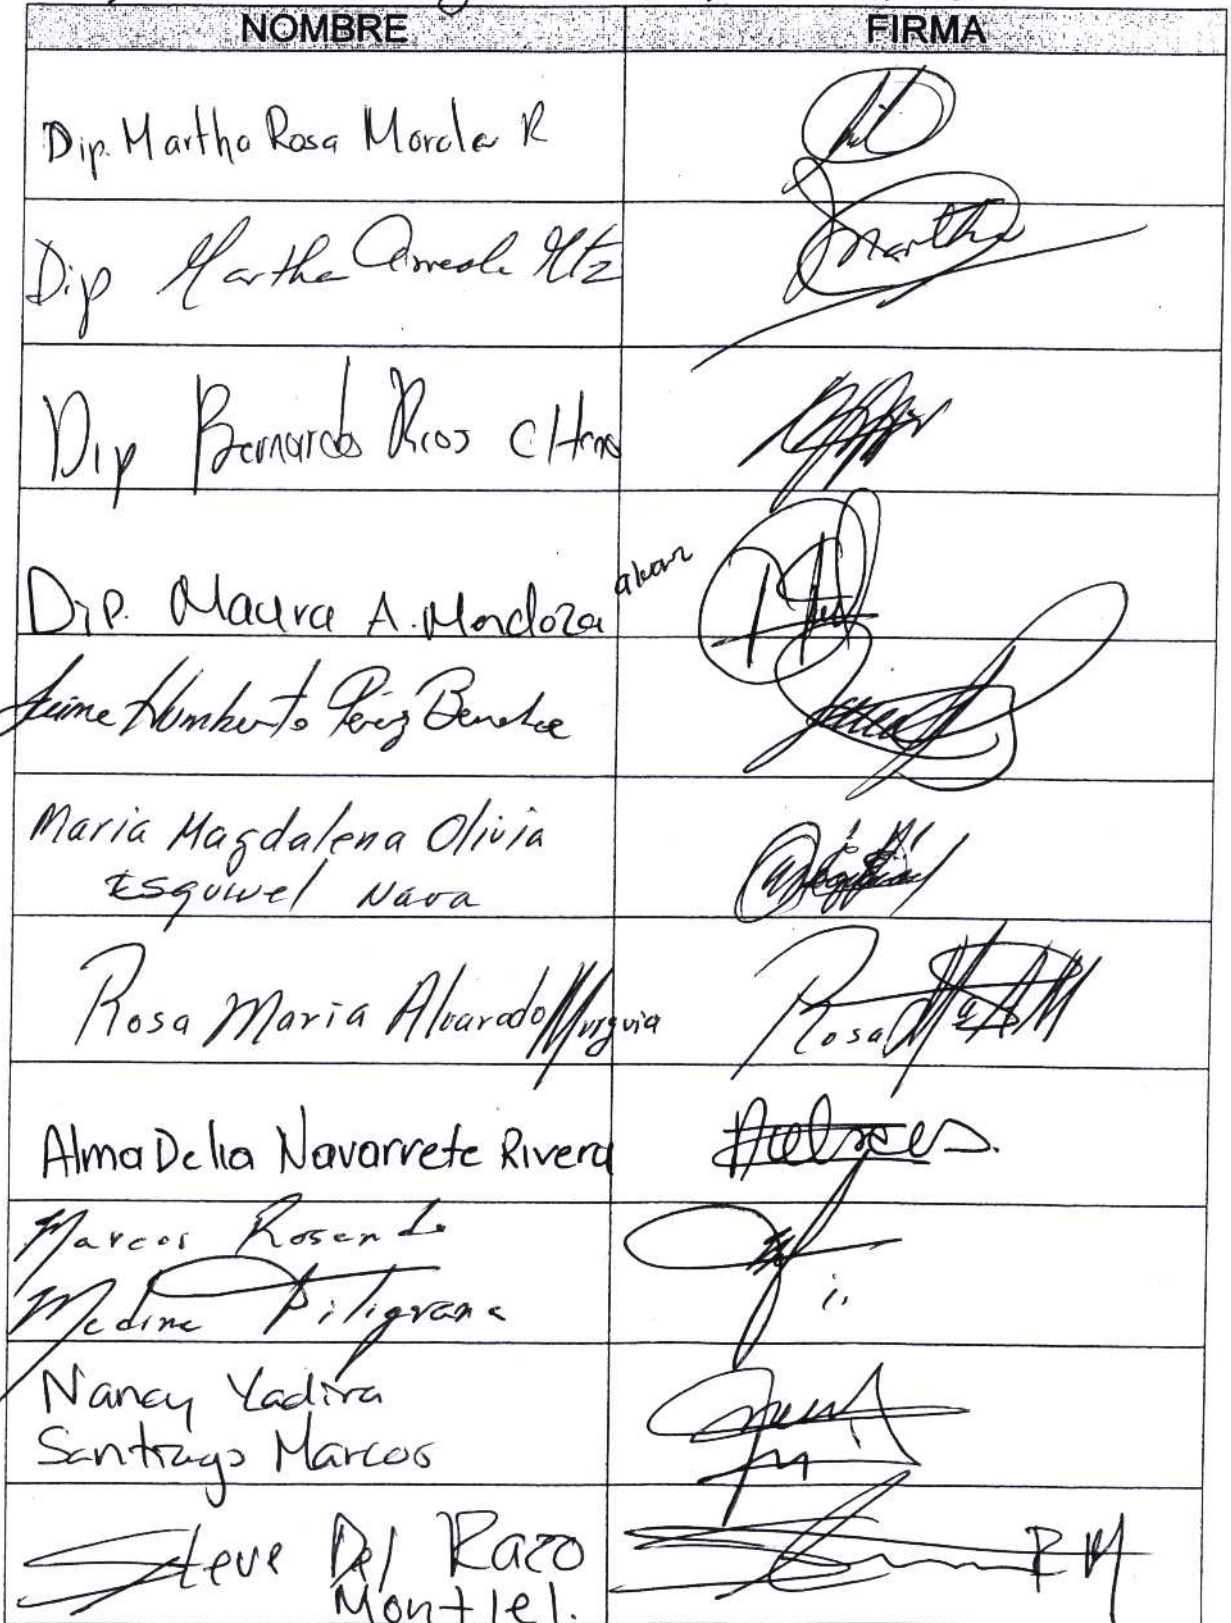 NOMBRE FIRMA
Dip. Martha Rosa Morales R
Dip Martha Arreola Mtz
Martha
Dip Bernardo Rios
Dip. Maura A. Mendoza
Jaime Humberto Pérez Bernabe
Maria Magdalena Olivia
Esquivel Nava
Rosa Maria Alvarado Murguia
Rosa Ma A M
Alma Delia Navarrete Rivera
Marcos Rosendo
Medina Filigrana
Nancy Yadira
Santiago Marcos
Steve Del Razo
Montiel.
R M